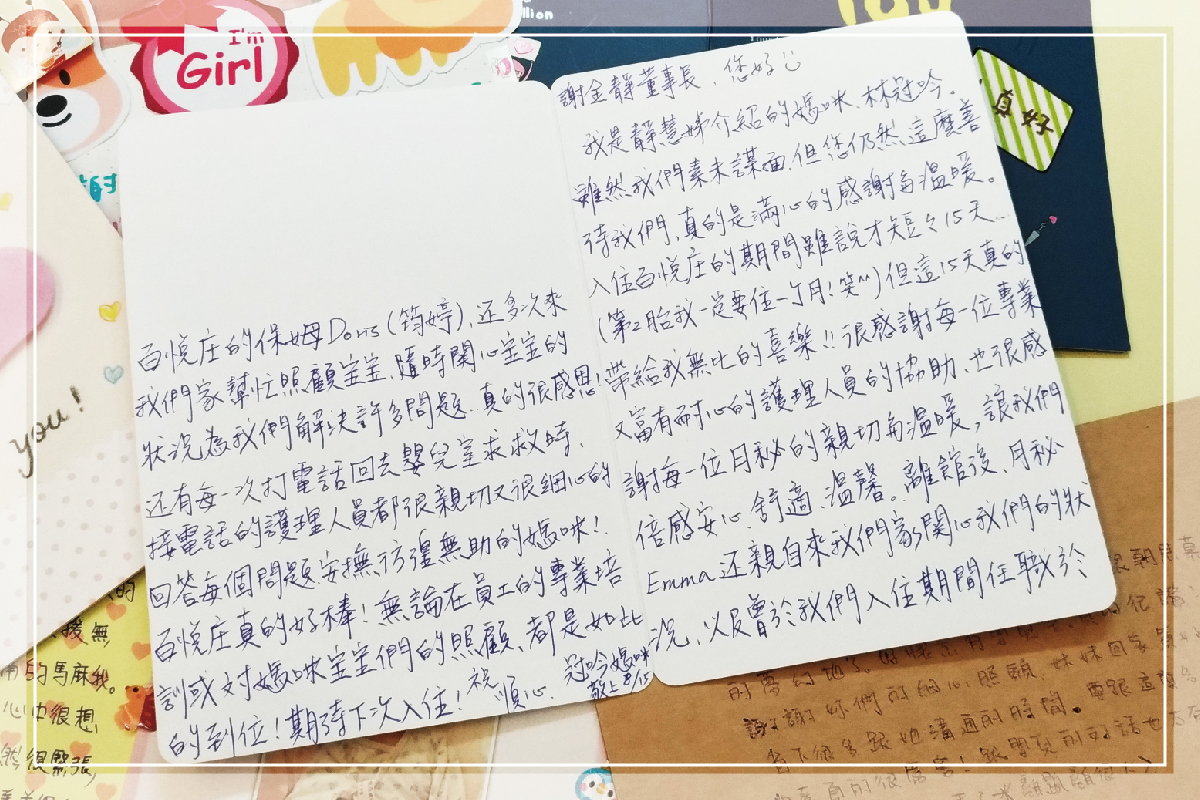 I'm
Girl
真好
you!
謝金靜董事長、您好
我是靜慧姊介紹的媽咪、林冠吟。
雖然我們素未謀面,但您仍然這麼善
待我們,真的是滿心的感謝與溫暖。
入住百悅庄的期間雖說才短々15天…
(第2胎我一定要住一個月!笑^^)但這15天真的
帶給我無比的喜樂!!很感謝每一位專業
又富有耐心的護理人員的協助、也很感
謝每一位月秘的親切與溫暖,讓我們
倍感安心、舒適、溫馨。離館後,月秘
Emma还親自來我們家關心我們的狀
況,以及曾於我們入住期間任職於
百悅庄的保姆Doris(筠婷),还多次來
我們家幫忙照顧宝宝,隨時関心宝宝的
狀況為我們解決許多問題,真的很感恩!
还有每一次打電話回去嬰兒室求救時,
接電話的護理人員都很親切又很細心的
回答每個問題安撫彷徨無助的媽咪!
百悅庄真的好棒!無論在員工的專業培
訓或对媽咪宝宝們的照顧,都是如此
的到位!期待下次入住!祝 順心.
冠吟媽咪
敬上
的馬麻我。
心中很想,
然很緊張,